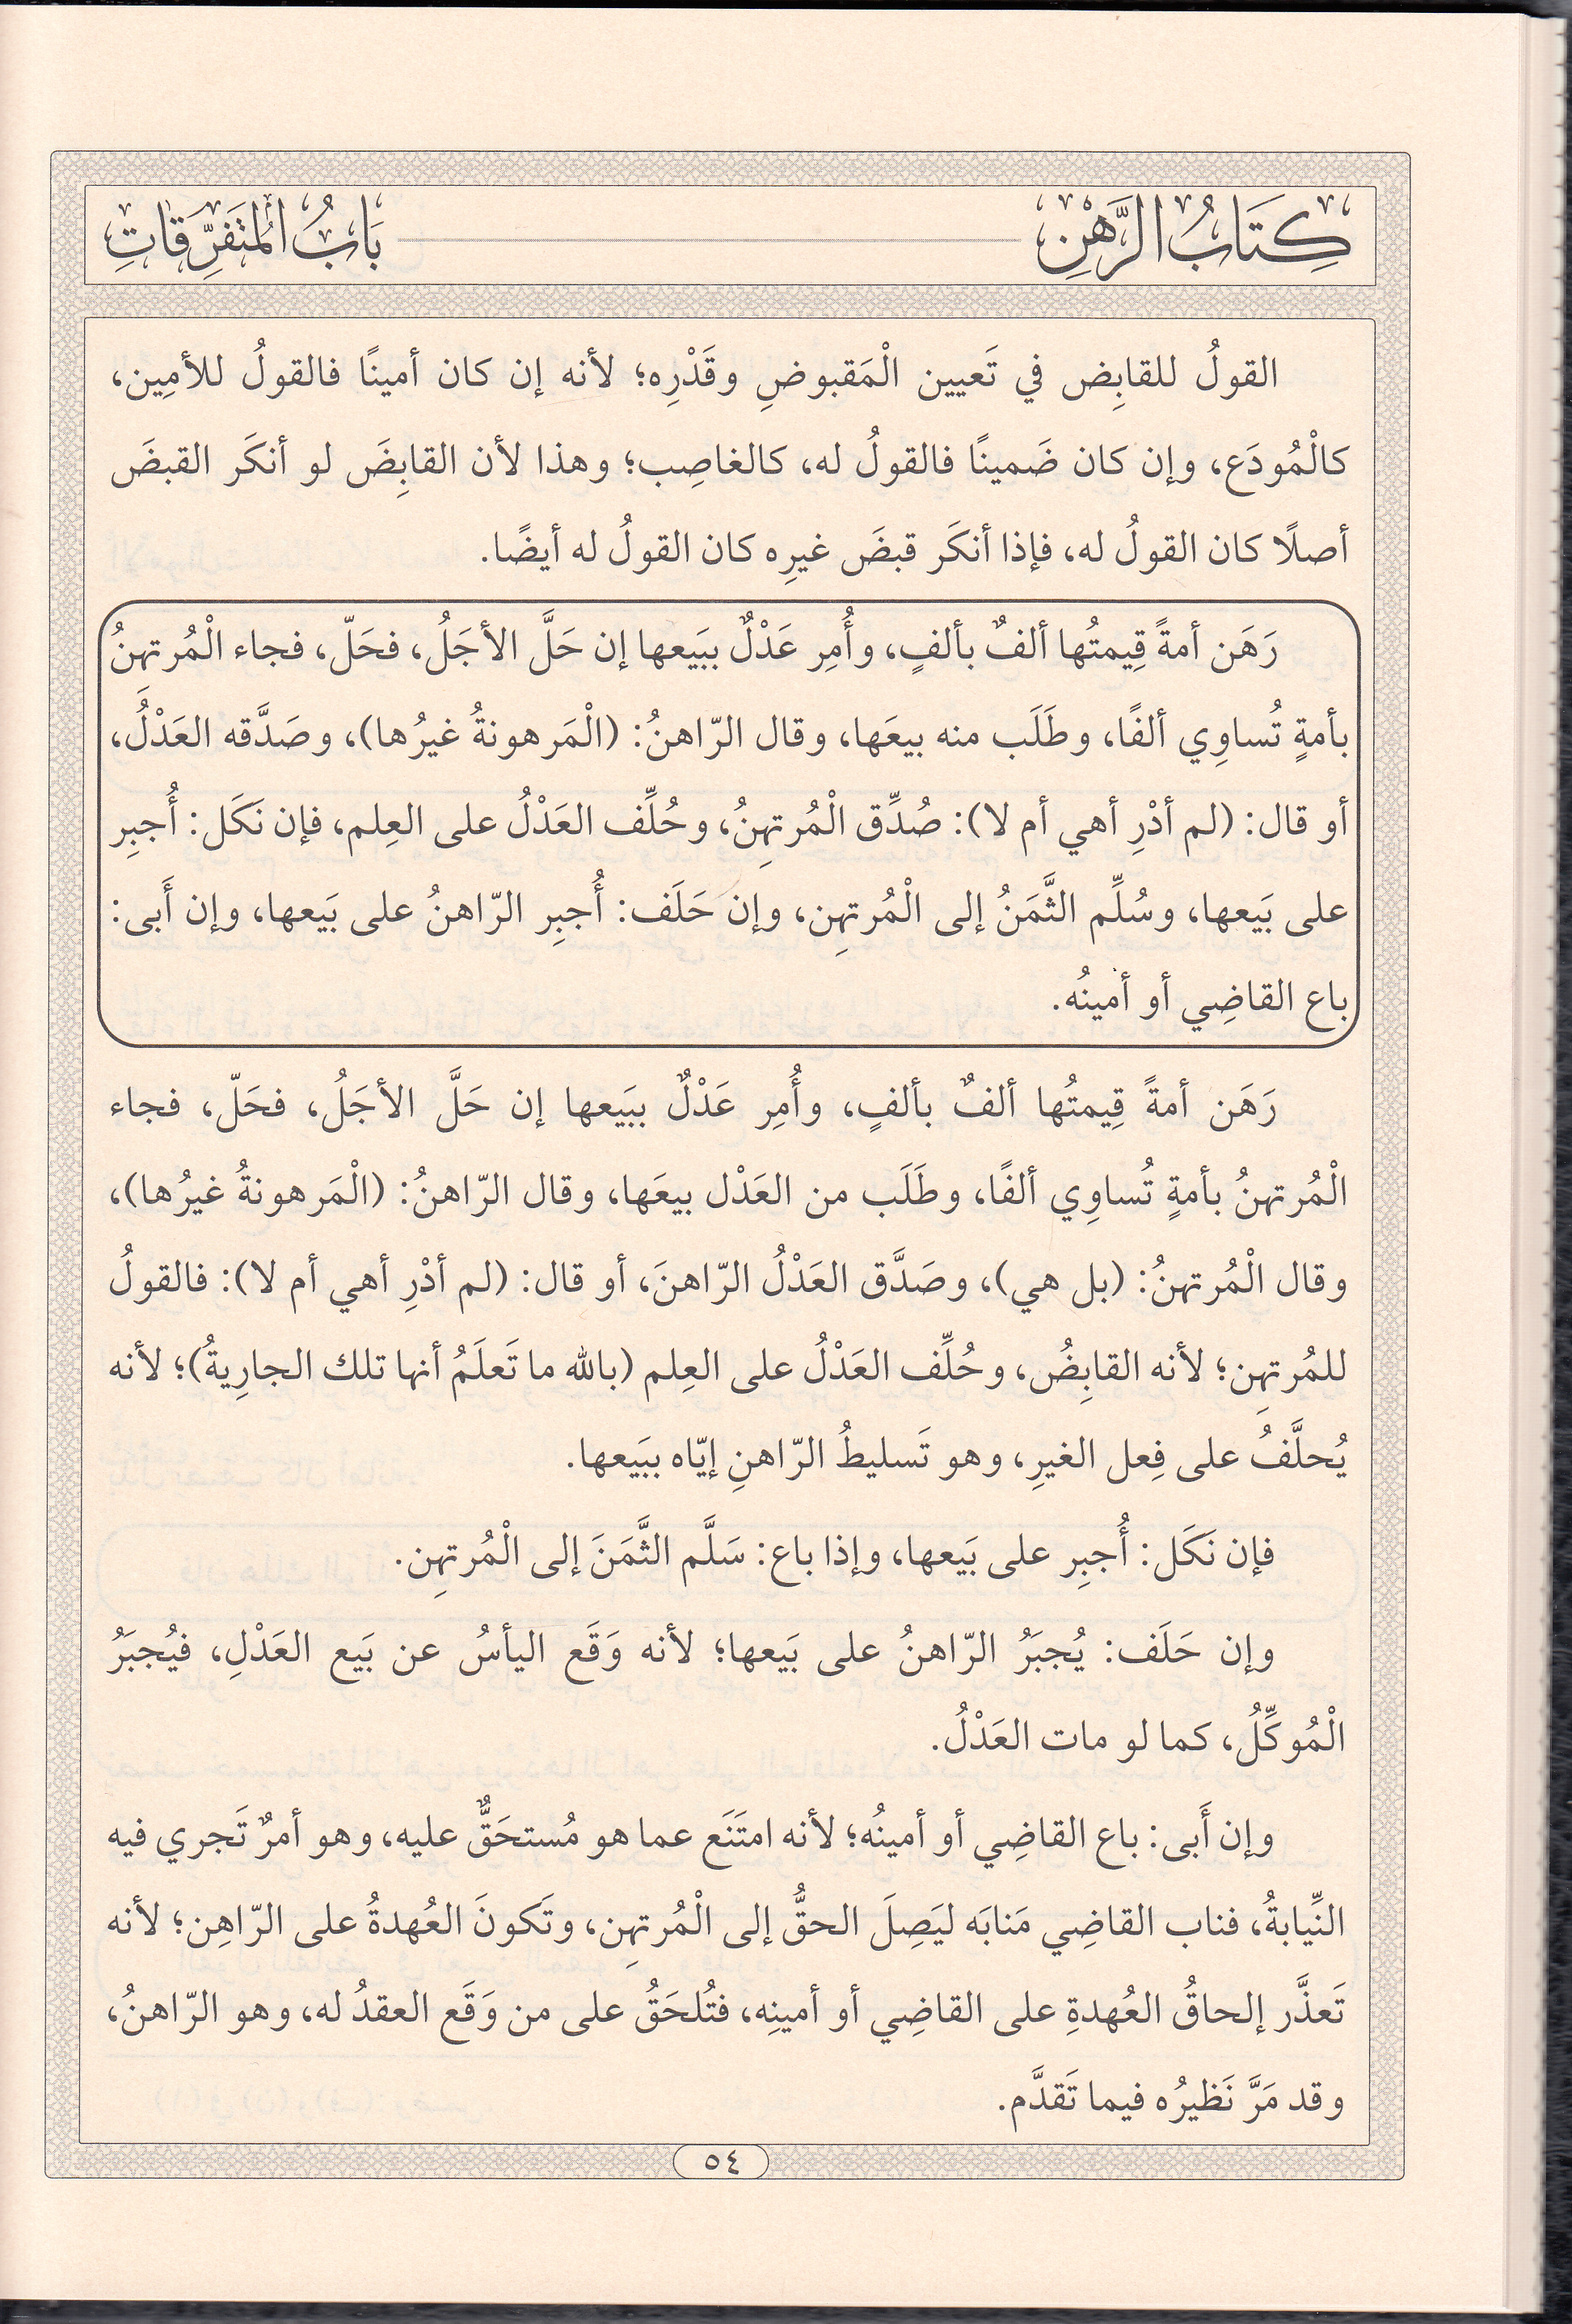 كِتَابُ الرَّهْنِ
بَابُ الْمُتَفَرِّقَاتِ
القولُ للقابِض في تَعيين الْمَقبوضِ وقَدْرِه؛ لأنه إن كان أمينًا فالقولُ للأمِين،
كالْمُودَع، وإن كان ضَمينًا فالقولُ له، كالغاصِب؛ وهذا لأن القابِضَ لو أنكَر القبضَ
أصلًا كان القولُ له، فإذا أنكَر قبضَ غيرِه كان القولُ له أيضًا.
رَهَن أمةً قِيمتُها ألفٌ بألفٍ، وأُمِر عَدْلٌ ببَيعها إن حَلَّ الأجَلُ، فحَلّ، فجاء الْمُرتهنُ
بأمةٍ تُساوِي ألفًا، وطَلَب منه بيعَها، وقال الرّاهنُ: (الْمَرهونةُ غيرُها)، وصَدَّقه العَدْلُ،
أو قال: (لم أدْرِ أهي أم لا): صُدِّق الْمُرتهِنُ، وحُلِّف العَدْلُ على العِلم، فإن نَكَل: أُجبِر
على بَيعها، وسُلِّم الثَّمَنُ إلى الْمُرتهِن، وإن حَلَف: أُجبِر الرّاهنُ على بَيعها، وإن أَبى:
باع القاضِي أو أمينُه.
رَهَن أمةً قِيمتُها ألفٌ بألفٍ، وأُمِر عَدْلٌ ببَيعها إن حَلَّ الأجَلُ، فحَلّ، فجاء
الْمُرتهنُ بأمةٍ تُساوِي ألفًا، وطَلَب من العَدْل بيعَها، وقال الرّاهنُ: (الْمَرهونةُ غيرُها)،
وقال الْمُرتهنُ: (بل هي)، وصَدَّق العَدْلُ الرّاهنَ، أو قال: (لم أدْرِ أهي أم لا): فالقولُ
للمُرتهِن؛ لأنه القابِضُ، وحُلِّف العَدْلُ على العِلم (بالله ما تَعلَمُ أنها تلك الجارِيةُ)؛ لأنه
يُحلَّفُ على فِعل الغيرِ، وهو تَسليطُ الرّاهنِ إيّاه ببَيعها.
فإن نَكَل: أُجبِر على بَيعها، وإذا باع: سَلَّم الثَّمَنَ إلى الْمُرتهِن.
وإن حَلَف: يُجبَرُ الرّاهنُ على بَيعها؛ لأنه وَقَع اليأسُ عن بَيع العَدْلِ، فيُجبَرُ
الْمُوكِّلُ، كما لو مات العَدْلُ.
وإن أَبى: باع القاضِي أو أمينُه؛ لأنه امتَنَع عما هو مُستحَقٌّ عليه، وهو أمرٌ تَجري فيه
النِّيابةُ، فناب القاضِي مَنابَه ليَصِلَ الحقُّ إلى الْمُرتهِن، وتَكونَ العُهدةُ على الرّاهِن؛ لأنه
تَعذَّر إلحاقُ العُهدةِ على القاضِي أو أمينِه، فتُلحَقُ على من وَقَع العقدُ له، وهو الرّاهنُ،
وقد مَرَّ نَظيرُه فيما تَقدَّم.
٥٤